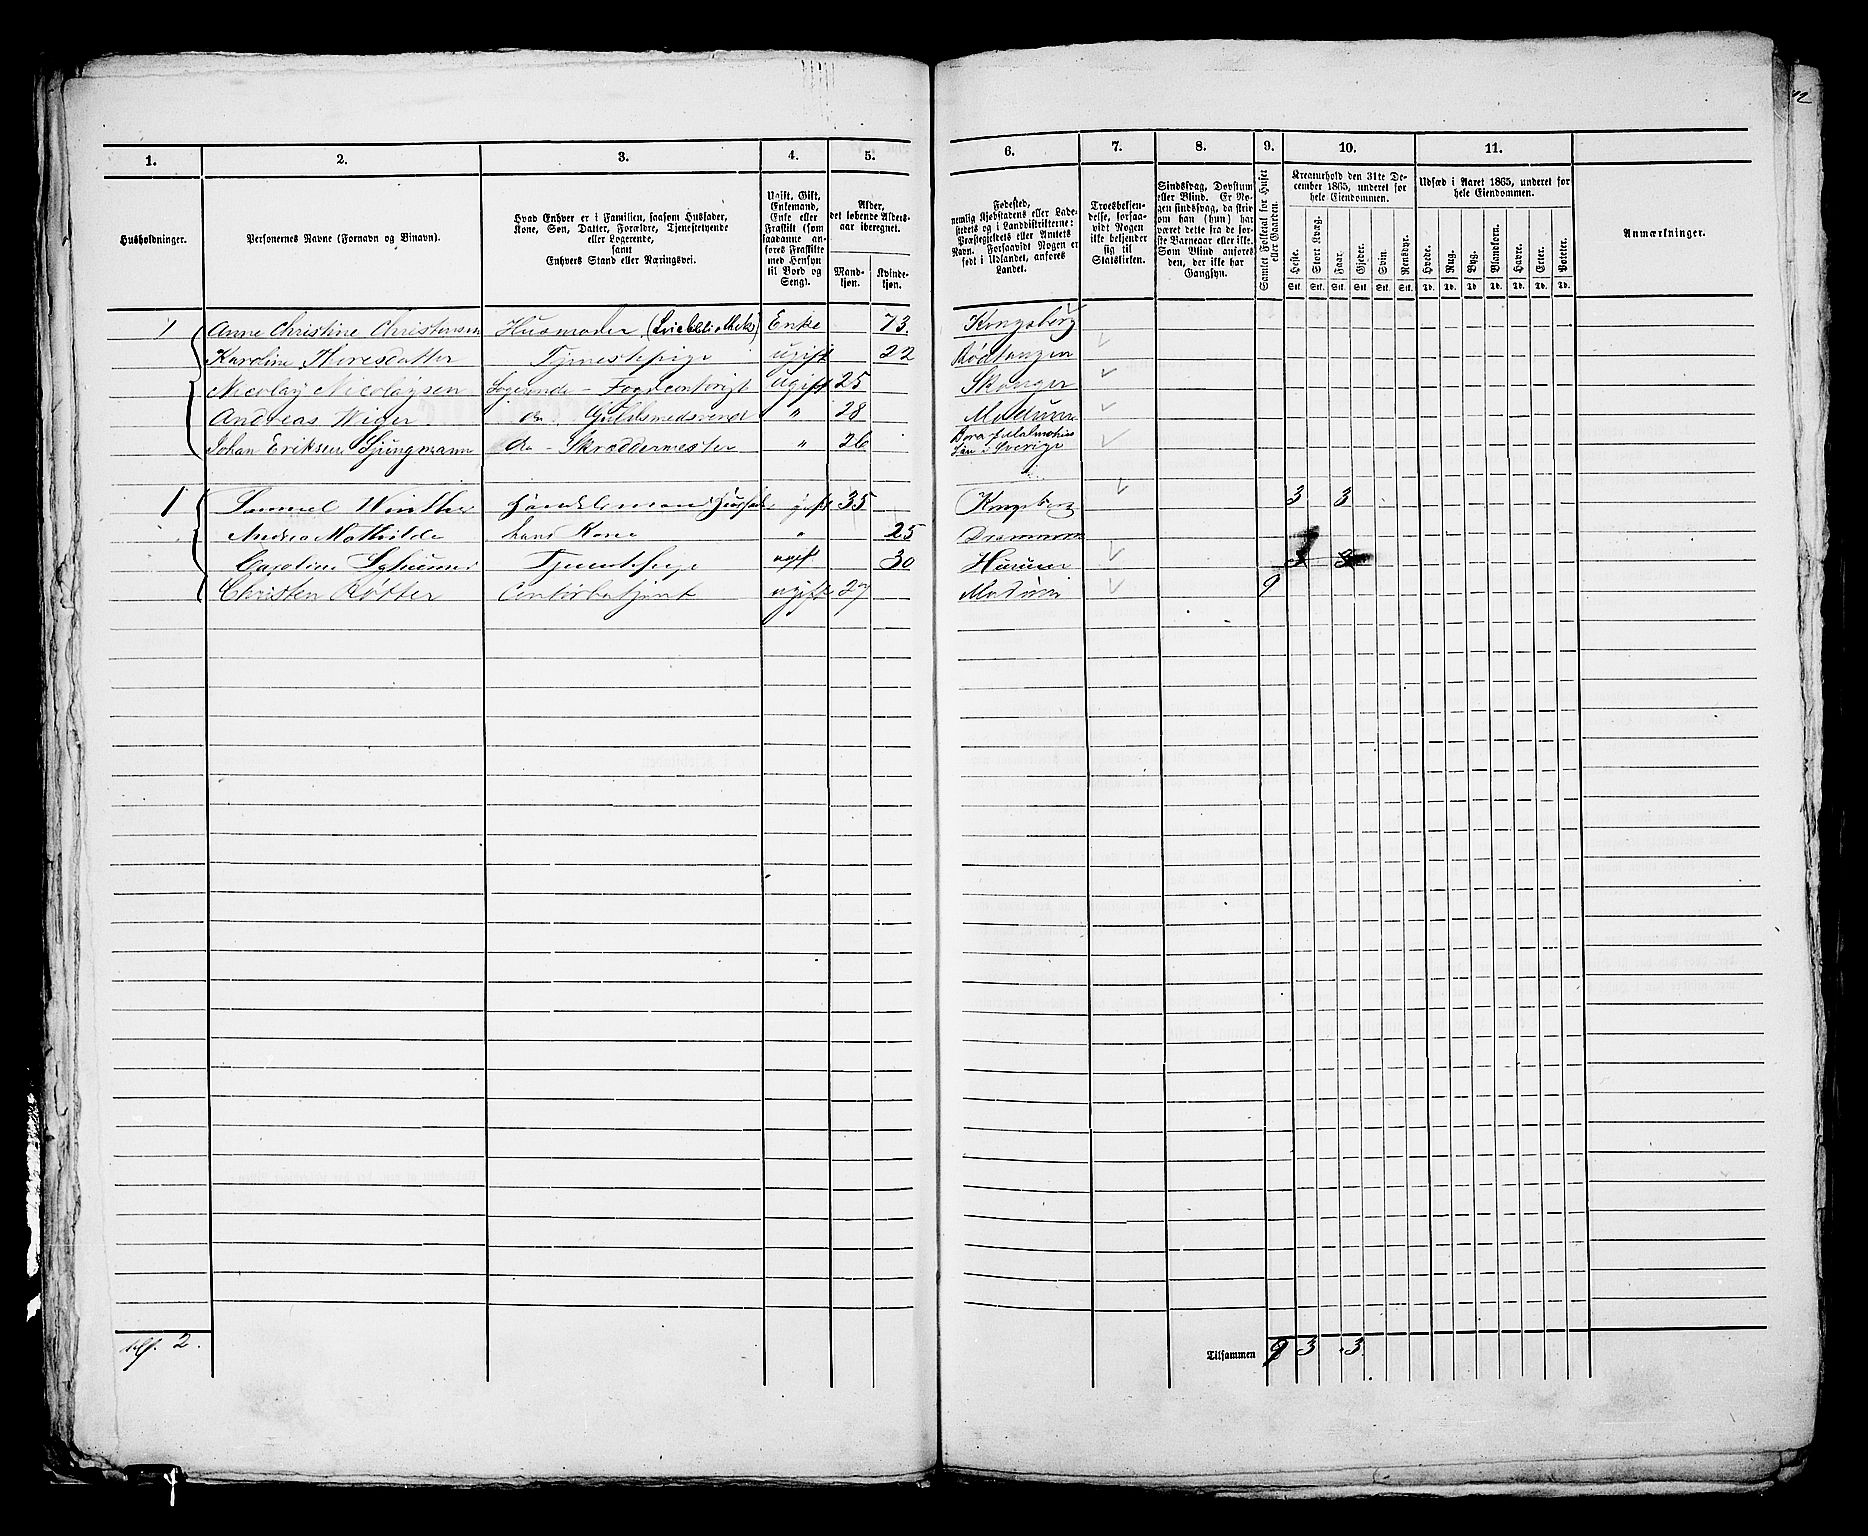 12
1. 2. 3. 4. 5. 6. 7. 8. 9. 10. 11.
Husholdninger.
Personernes Navne (Fornavn og Binavn).
Hvad Enhver er i Familien, saasom Husfader,
Kone, Søn, Datter, Forældre, Tjenestetyende
eller Logerende,
samt
Enhvers Stand eller Næringsvei.
Ugift, Gift,
Enkemand,
Enke eller
Fraskilt (som
saadanne an-
føres Fraskilte
med Hensyn
til Bord og
Seng).
Alder,
det løbende Alders-
aar iberegnet.
Mand-
kjøn.
Kvinde-
kjøn.
Fødested,
nemlig Kjøbstadens eller Lade-
stedets og i Landdistrikterne:
Præstegjeldets eller Amtets
Navn. Forsaavidt Nogen er
født i Udlandet, anføres
Landet.
Troesbekjen-
delse, forsaa-
vidt Nogen
ikke bekjender
sig til
Statskirken.
Sindssvag, Døvstum
eller Blind. Er No-
gen sindssvag, da skrives
om han (hun) har
været dette fra de før-
ste Barneaar eller ikke.
Som Blind anføres
den, der ikke har
Gangsyn.
Samlet Folketal for Huset
eller Gaarden.
Kreaturhold den 31te De-
cember 1865, underet for
hele Eiendommen.
Heste. Stort Kvæg. Faar. Gjeder. Svin. Rensdyr.
Stk. Stk. Stk. Stk. Stk. Stk.
Udsæd i Aaret 1865, underet for
hele Eiendommen.
Hvede. Rug. Byg. Blandkorn. Havre. Erter. Poteter.
Td. Td. Td. Td. Td. Td. Td.
Anmærkninger.
1 Anne Christine Christensen Husmoder (Leiebibliothek) Enke 73. Kongsberg
Karoline Thoresdatter Tjenestepige ugift 22 Rødtangen
Nicolay Nicolaysen Logerende - ugift 25
Andreas do Guldsmedsvend " 28 Modum
Johan Eriksen Ljungmann do - Skræddermester " 26 Sverige
1 Samuel Winther Handelsmand gift 35 Kongsberg 3 3
Andrea Mathilde hans Kone " 25 Drammen
Caroline Tjenestepige ugift 30 Hurum
Christen Røtter Contorbetjent ugift 27 Modum 9
2.
Tilsammen 9 3 3.